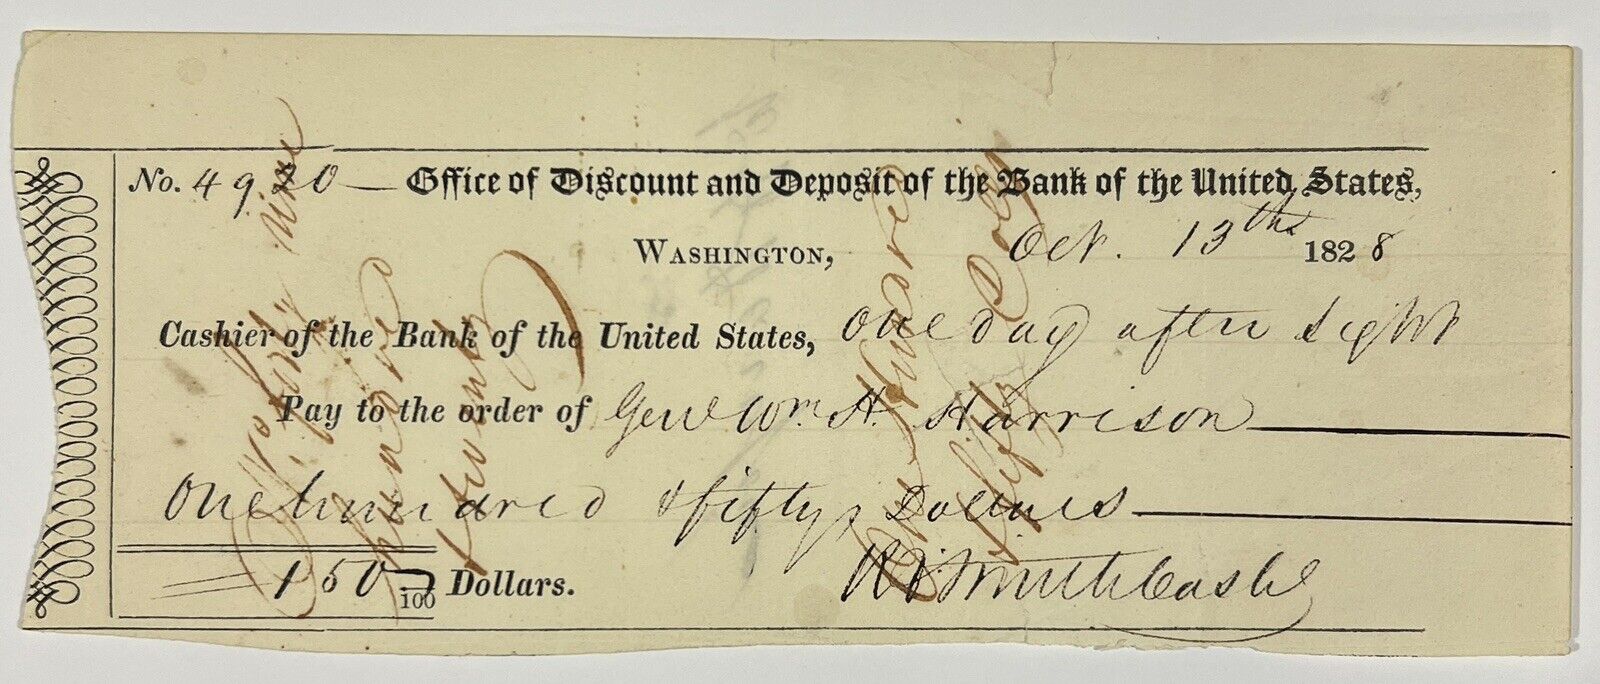 No. 4920 — Office of Discount and Deposit of the Bank of the United States,
Washington, Oct. 13th 1828
Cashier of the Bank of the United States, One day after sight
Pay to the order of Genl Wm. H. Harrison
One hundred & fifty Dollars
150 /100 Dollars. R. Smith Cashr
hundred
twenty
One Hundred
Fifty